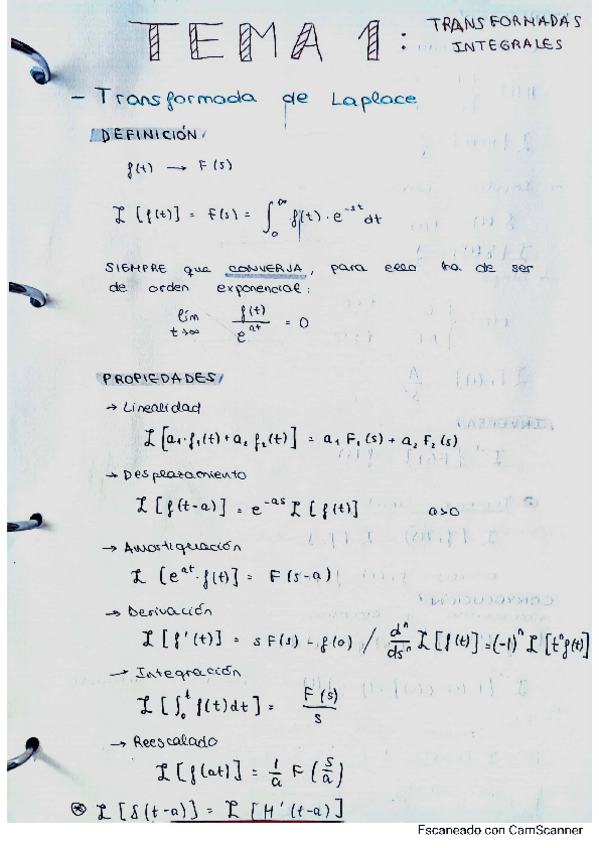 TEMA 1: TRANSFORMADAS INTEGRALES
- Transformada de Laplace
DEFINICIÓN
f(t) → F(s)
ℒ[f(t)] = F(s) = ∫₀^∞ f(t)·e^(-st) dt
SIEMPRE que CONVERJA, para ello ha de ser
de orden exponencial:
lím t→∞ f(t)/e^(at) = 0
PROPIEDADES
→ Linealidad
ℒ[a₁·f₁(t)+a₂ f₂(t)] = a₁ F₁(s) + a₂ F₂(s)
→ Desplazamiento
ℒ[f(t-a)] = e^(-as) ℒ[f(t)] a>0
→ Amortiguación
ℒ[e^(at)·f(t)] = F(s-a)
→ Derivación
ℒ[f'(t)] = s F(s) - f(0) / dⁿ/dsⁿ ℒ[f(t)] = (-1)ⁿ ℒ[tⁿf(t)]
→ Integración
ℒ[∫₀^t f(t)dt] = F(s)/s
→ Reescalado
ℒ[f(at)] = 1/a F(s/a)
⊛ ℒ[δ(t-a)] = ℒ[H'(t-a)]
Escaneado con CamScanner